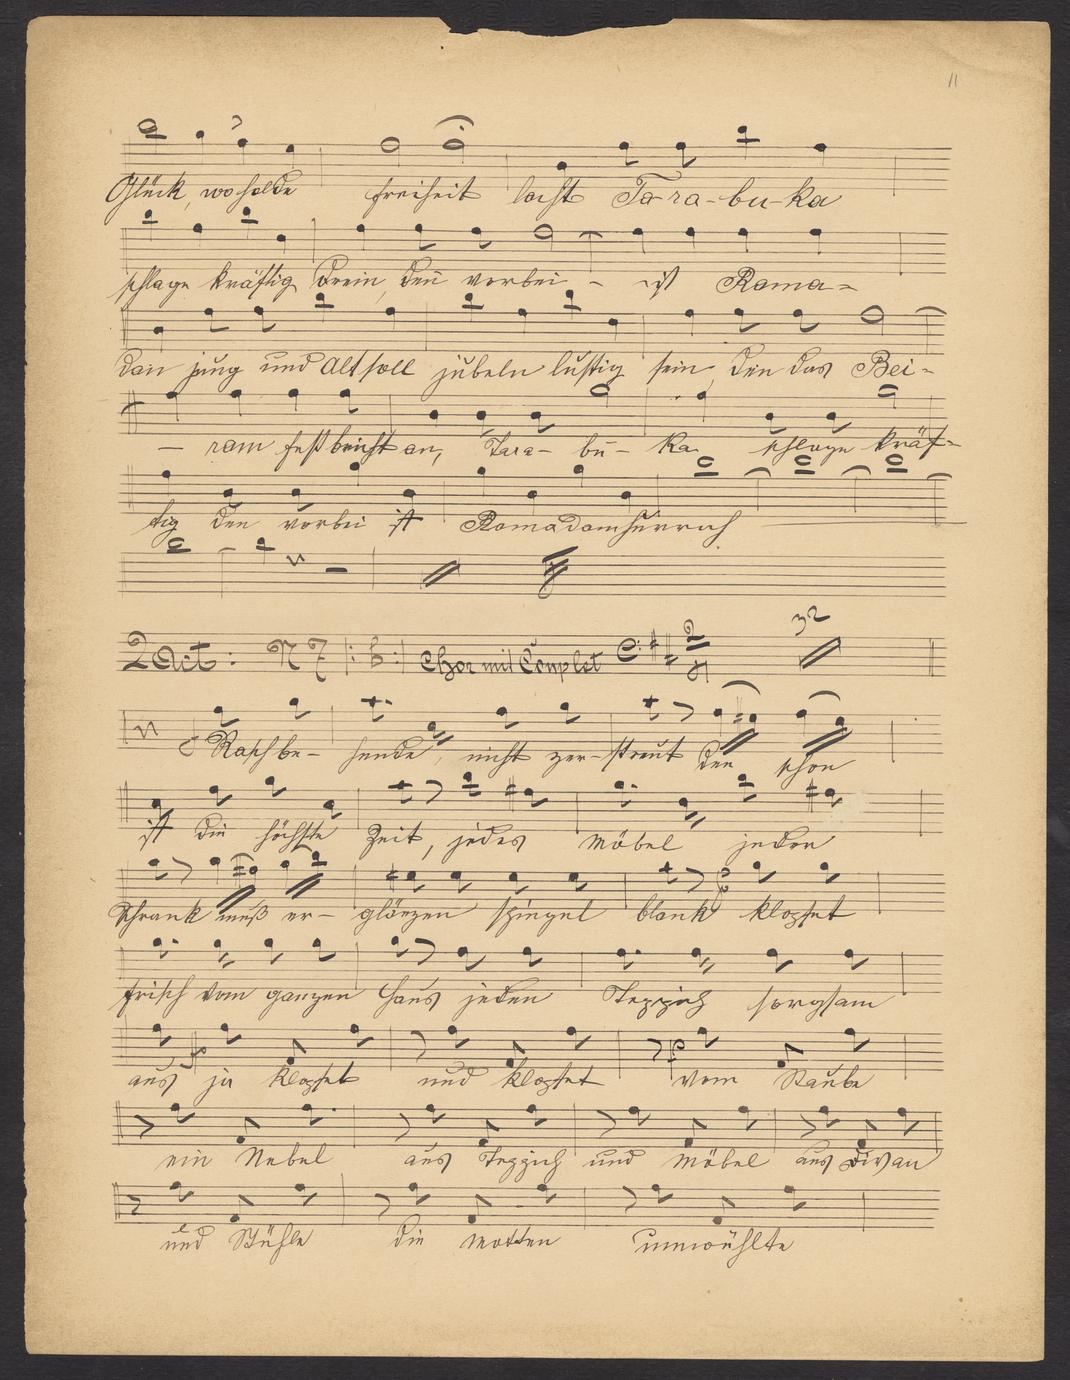 11
Glück, wo holde freiheit lacht Ta-ra-bu-ka
schlage kräftig drein, den̄ vorbei - ist Rama-
dan jung und Alt soll jubeln lustig sein, den das Bei-
- ram fest bricht an, Tara- bu- ka schlage kräf-
tig den vorbei ist Romadam hurrah
2 Act: N 7 |: 6 :| Chor mit Couplet
32
Rasch be- hende, nicht zer-streut den schon
ist die höchste Zeit, jedes Möbel jeden
Schrank muß er- glänzen spiegel blank klopfet
frisch vom ganzen Haus jeden Teppich sorgsam
aus ja klopfet und klopfet vom Staube
ein Nebel aus Teppich und Möbel aus Divan
und Stühle die Motten